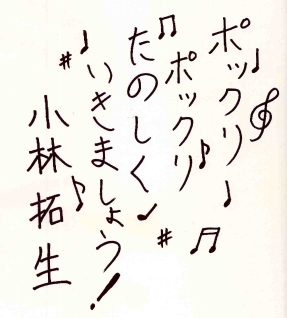 ポックリ
ポックリ
たのしく
いきましょう!
小林拓生